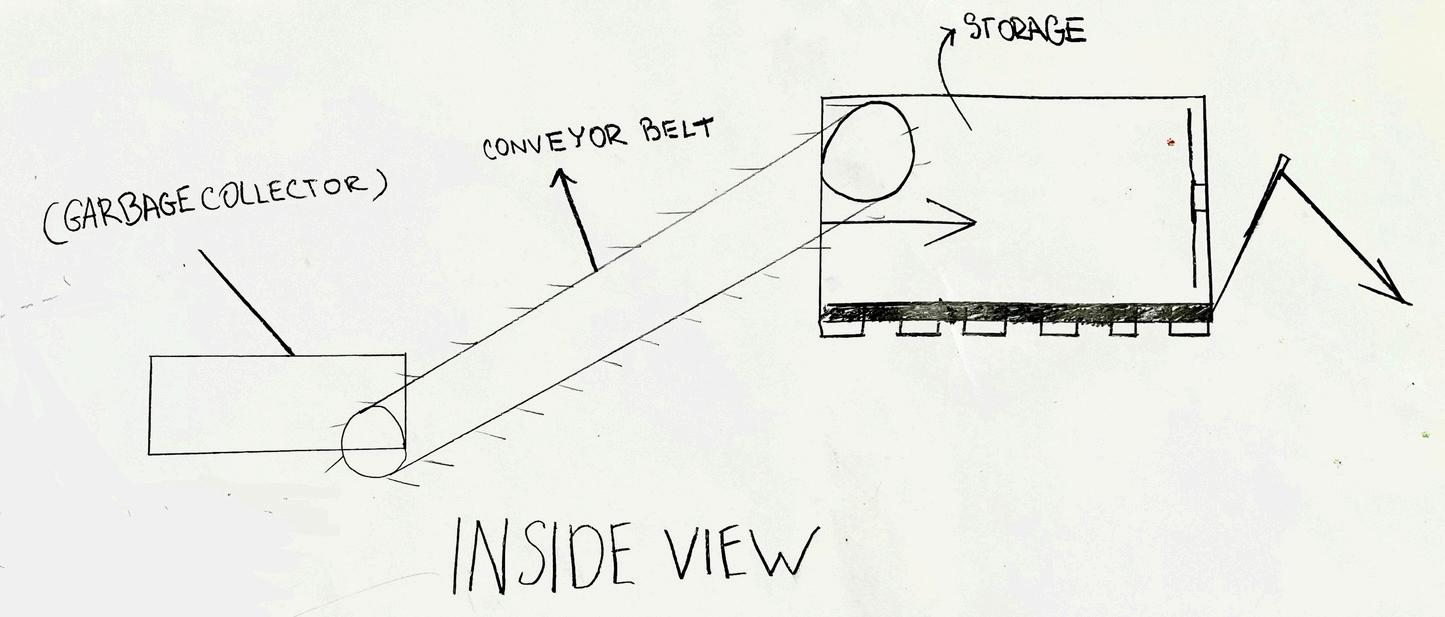 STORAGE
CONVEYOR BELT
(GARBAGE COLLECTOR)
INSIDE VIEW